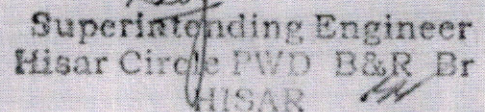 Superintending Engineer
Hisar Circle PWD B&R Br
HISAR